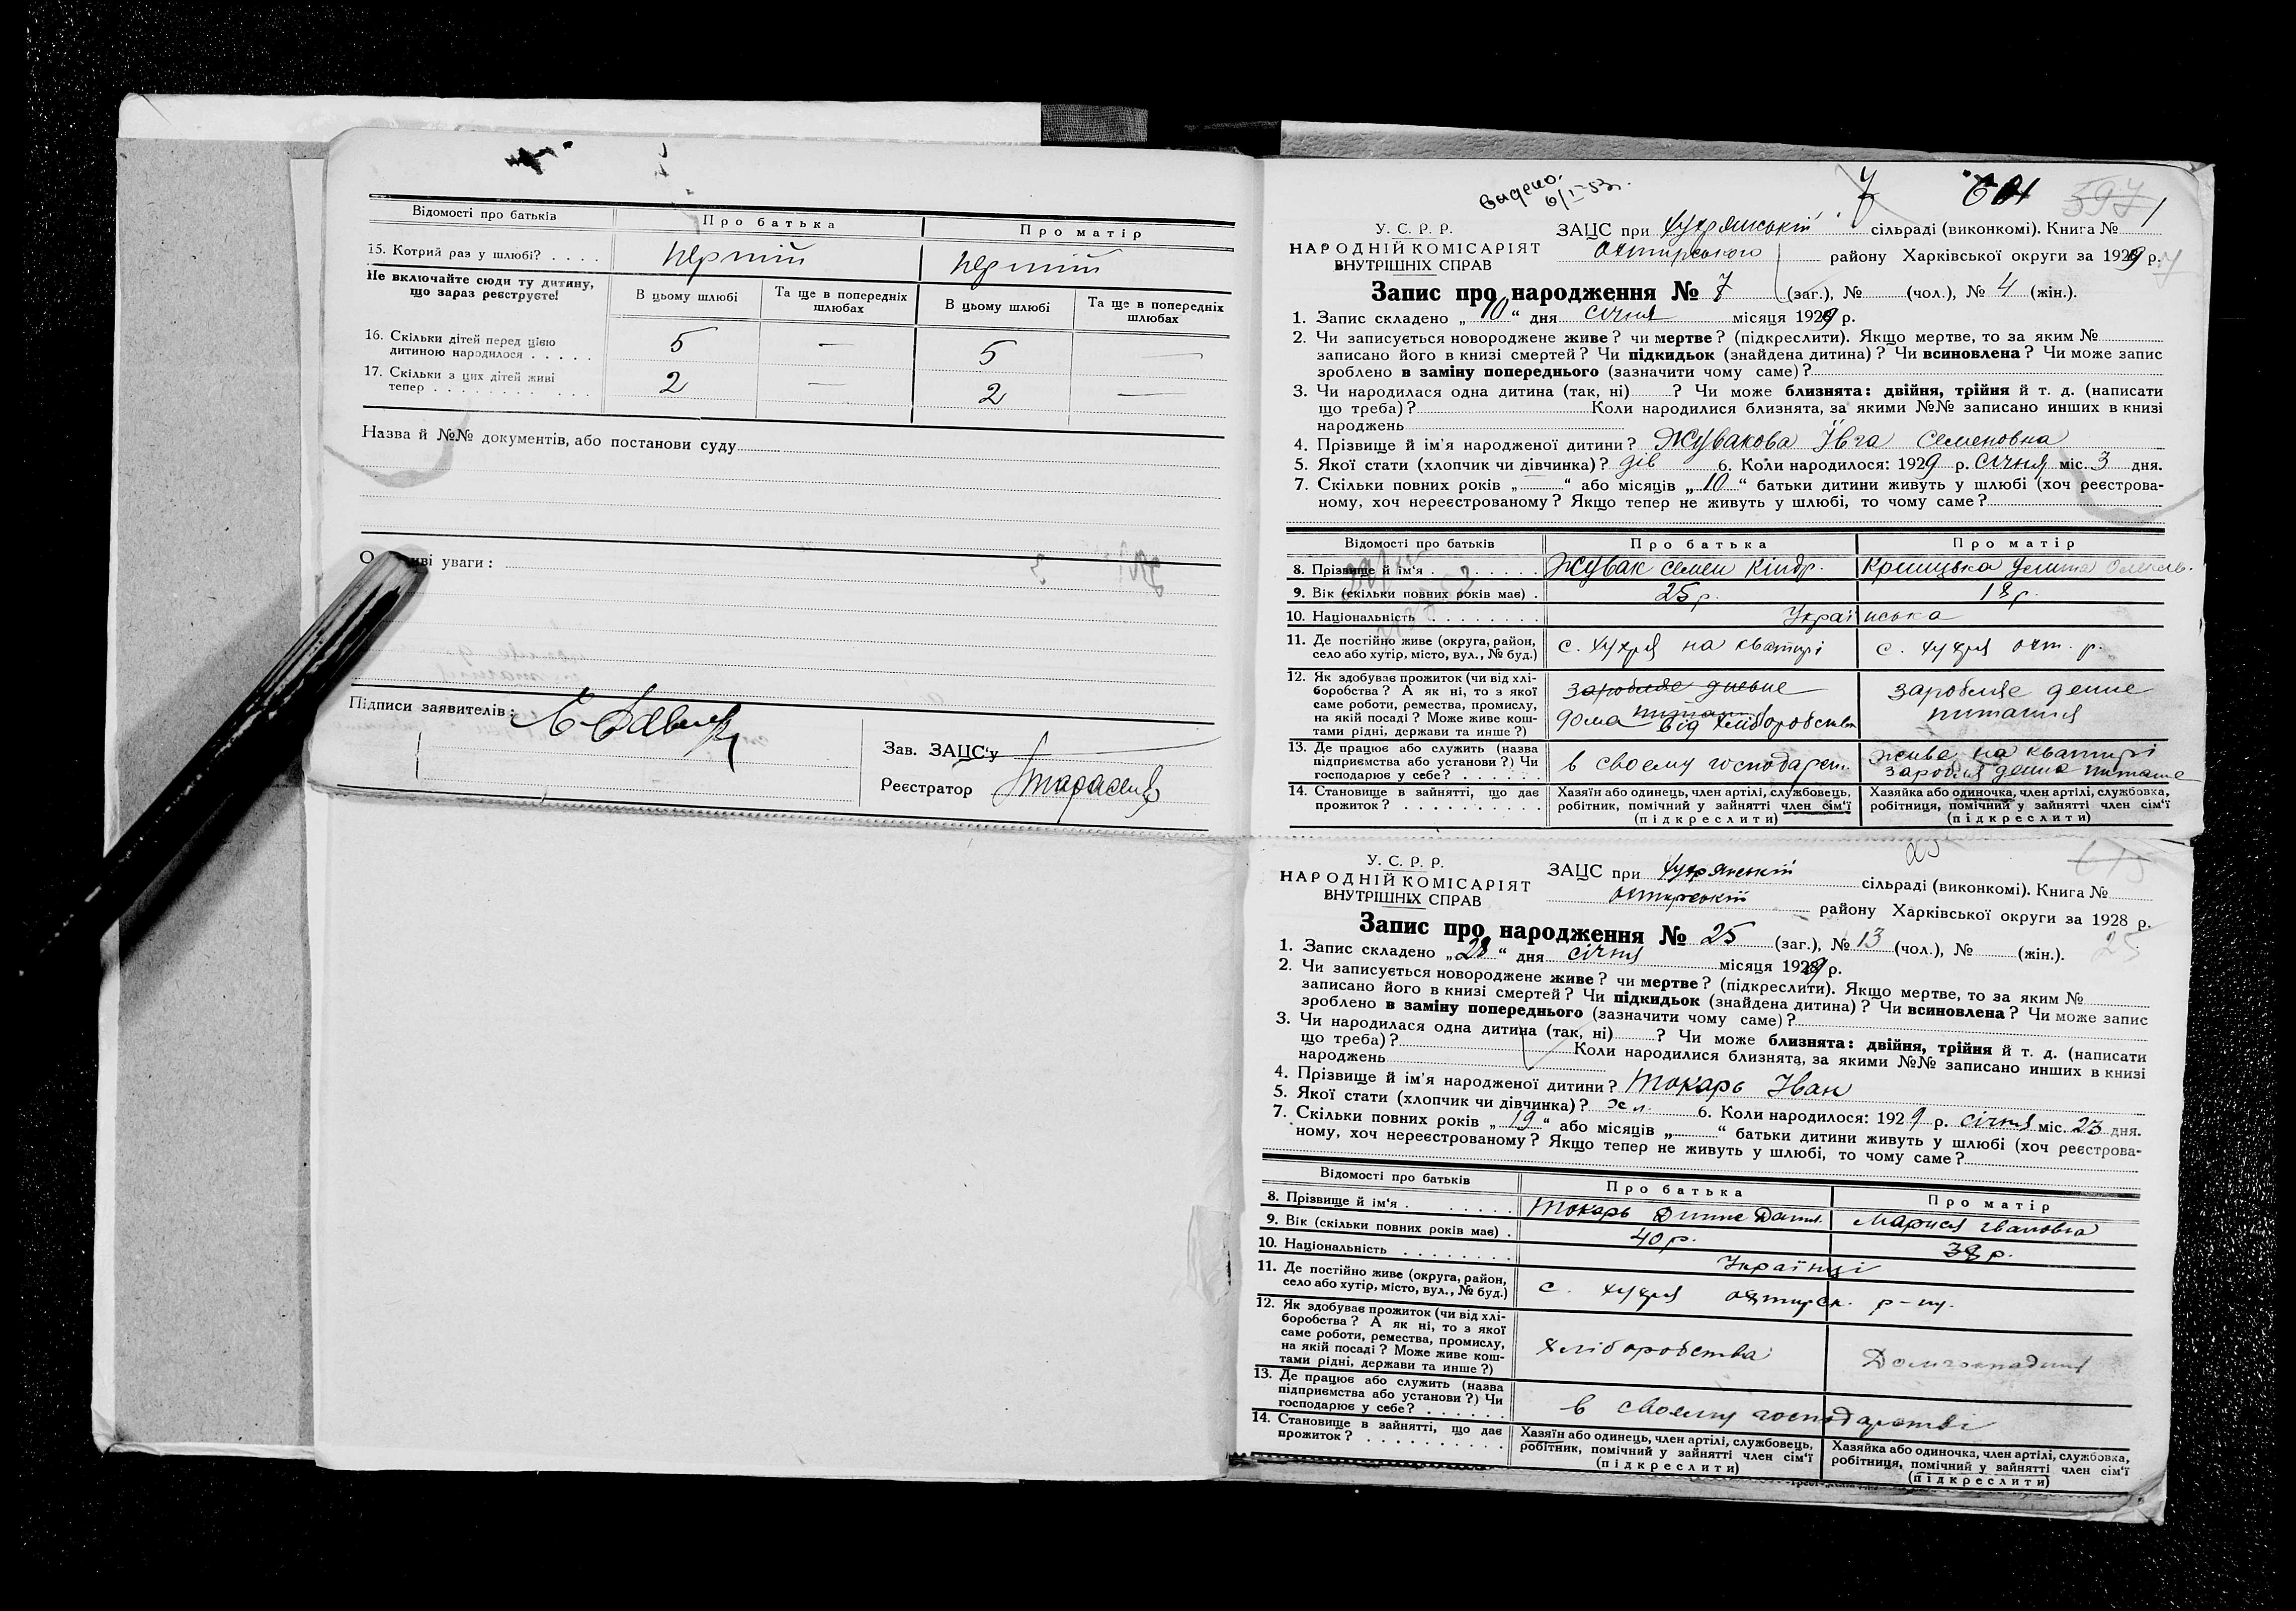 Відомості про батьків
Про батька
Про матір
15. Котрий раз у шлюбі? . . . .
перший
перший
Не включайте сюди ту дитину,
що зараз реєструєте!
В цьому шлюбі
Та ще в попередніх
шлюбах
В цьому шлюбі
Та ще в попередніх
шлюбах
16. Скільки дітей перед цією
дитиною народилося . . . . .
5
—
5
—
17. Скільки з цих дітей живі
тепер . . . . . . . . . . . .
2
—
2
—
Назва й №№ документів, або постанови суду
ві уваги :
Підписи заявителів :
Зав. ЗАЦС'у
Реєстратор
видено
6/I-53г.
7
597
У. С. Р. Р.
НАРОДНІЙ КОМІСАРІЯТ
ВНУТРІШНІХ СПРАВ
ЗАЦС при Хухрянській сільраді (виконкомі). Книга № 1
Охтирського району Харківської округи за 1929 р.
Запис про народження № 7 (заг.), № (чол.), № 4 (жін.).
1. Запис складено „10“ дня січня місяця 1929 р.
2. Чи записується новороджене живе? чи мертве? (підкреслити). Якщо мертве, то за яким №
записано його в книзі смерті? Чи підкидьок (знайдена дитина)? Чи всиновлена? Чи може запис
зроблено в заміну попереднього (зазначити чому саме)?
3. Чи народилася одна дитина (так, ні) ? Чи може близнята: двійня, трійня й т. д. (написати
що треба)? Коли народилися близнята, за якими №№ записано инших в книзі
народжень
4. Прізвище й ім'я народженої дитини? Жувакова Ївга Семеновна
5. Якої стати (хлопчик чи дівчинка)? дів 6. Коли народилося: 1929 р. січня міс. 3 дня.
7. Скільки повних років „ “ або місяців „10“ батьки дитини живуть у шлюбі (хоч реєстрова-
ному, хоч нереєстрованому? Якщо тепер не живуть у шлюбі, то чому саме?
Відомості про батьків
Про батька
Про матір
8. Прізвище й ім'я . . . . . . .
Жувак Семен Кіндр.
9. Вік (скільки повних років має) .
25 р.
18 р.
10. Національність . . . . . . . .
Українська
11. Де постійно живе (округа, район,
село або хутір, місто, вул., № буд.)
с. Хухря на квартирі
с. Хухря охт. р.
12. Як здобуває прожиток (чи від хлі-
боробства? А як ні, то з якої
саме роботи, ремества, промислу,
на якій посаді? Може живе кош-
тами рідні, держави та инше?)
заробляє дневне
питання
дома від хліборобства
заробляє денне
питання
13. Де працює або служить (назва
підприємства або установи?) Чи
господарює у себе? . . . . . .
в своєму господарст.
живе на квартирі
14. Становище в зайнятті, що дає
прожиток? . . . . . . . . . .
Хазяїн або одинець, член артілі, службовець,
робітник, помічний у зайнятті член сім'ї
(підкреслити)
Хазяйка або одиночка, член артілі, службовка,
робітниця, помічний у зайнятті член сім'ї
(підкреслити)
У. С. Р. Р.
НАРОДНІЙ КОМІСАРІЯТ
ВНУТРІШНІХ СПРАВ
ЗАЦС при Хухрянській сільраді (виконкомі). Книга №
охтирській району Харківської округи за 1928 р.
Запис про народження № 25 (заг.), № 13 (чол.), № (жін.).
25
1. Запис складено „28“ дня січня місяця 1929 р.
2. Чи записується новороджене живе? чи мертве? (підкреслити). Якщо мертве, то за яким №
записано його в книзі смерті? Чи підкидьок (знайдена дитина)? Чи всиновлена? Чи може запис
зроблено в заміну попереднього (зазначити чому саме)?
3. Чи народилася одна дитина (так, ні) ? Чи може близнята: двійня, трійня й т. д. (написати
що треба)? Коли народилися близнята, за якими №№ записано инших в книзі
народжень
4. Прізвище й ім'я народженої дитини? Токарь Іван
5. Якої стати (хлопчик чи дівчинка)? хл. 6. Коли народилося: 1929 р. січня міс. 23 дня.
7. Скільки повних років „19“ або місяців „ “ батьки дитини живуть у шлюбі (хоч реєстрова-
ному, хоч нереєстрованому? Якщо тепер не живуть у шлюбі, то чому саме?
Відомості про батьків
Про батька
Про матір
8. Прізвище й ім'я . . . . . . .
Токарь
Мария Івановна
9. Вік (скільки повних років має) .
40 р.
38 р.
10. Національність . . . . . . . .
Українці
11. Де постійно живе (округа, район,
село або хутір, місто, вул., № буд.)
с. Хухря охтирск. р-ну.
12. Як здобуває прожиток (чи від хлі-
боробства? А як ні, то з якої
саме роботи, ремества, промислу,
на якій посаді? Може живе кош-
тами рідні, держави та инше?)
хліборобства
13. Де працює або служить (назва
підприємства або установи?) Чи
господарює у себе? . . . . . .
в своєму господарстві
14. Становище в зайнятті, що дає
прожиток? . . . . . . . . . .
Хазяїн або одинець, член артілі, службовець,
робітник, помічний у зайнятті член сім'ї
(підкреслити)
Хазяйка або одиночка, член артілі, службовка,
робітниця, помічний у зайнятті член сім'ї
(підкреслити)